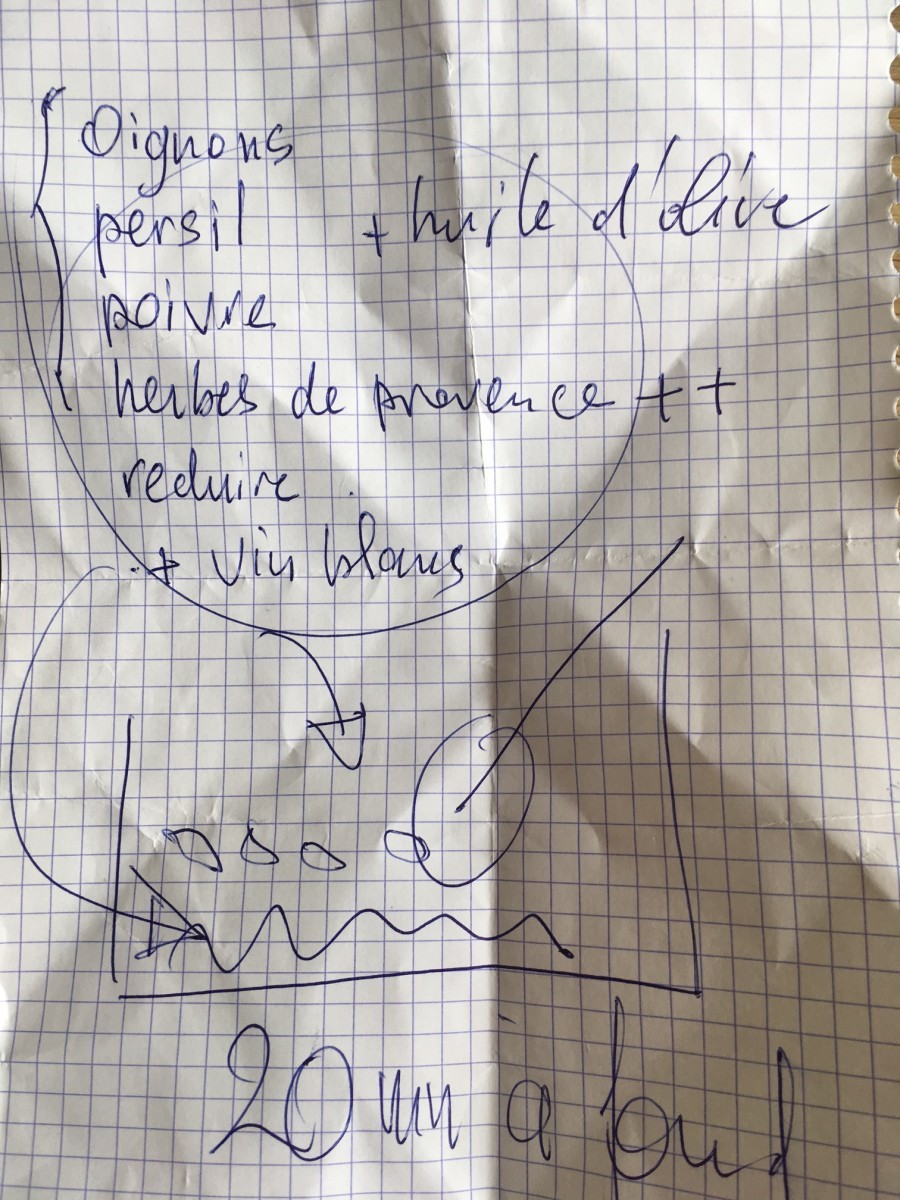 Oignons
persil + huile d'olive
poivre
herbes de provence ++
reduire
+ vin blanc
20 mn à fond